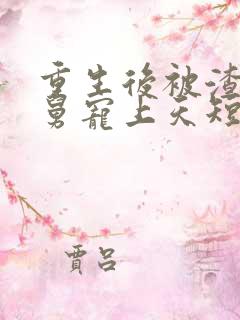 重生後被渣
舅寵上天短
賈呂